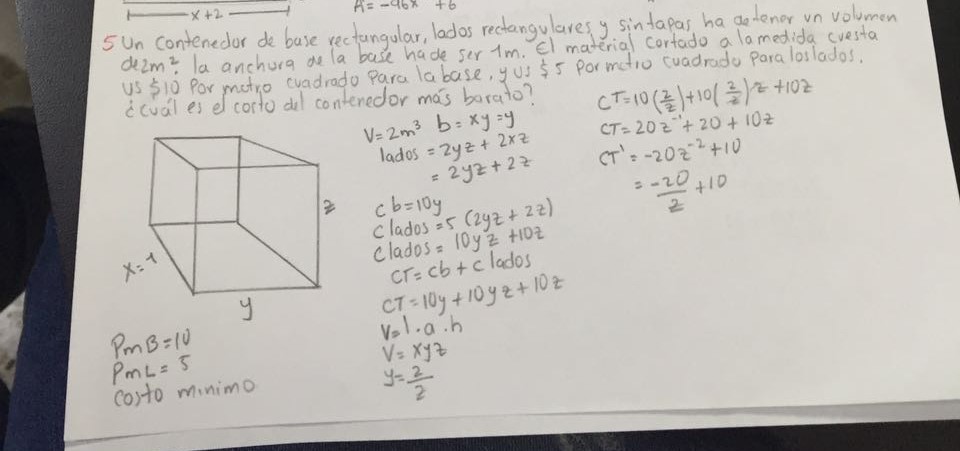 x+2
A = -96x +6
5 Un contenedor de base rectangular, lados rectangulares y sin tapas ha de tener un volumen
de 2m². la anchura de la base ha de ser 1m. El material cortado a la medida cuesta
US $10 Por metro cuadrado Para la base, y US $5 Por metro cuadrado Para los lados.
¿cuál es el costo del contenedor más barato?
x=1
y
z
PmB=10
PmL=5
Costo minimo
V=2m³ b=xy=y
lados = 2yz + 2xz
= 2yz+2z
cb=10y
Clados=5 (2yz+2z)
Clados= 10yz+10z
CT= cb + c lados
CT=10y+10yz+10z
V=l.a.h
V=xyz
y=2/z
CT=10(2/z)+10(2/z)z+10z
CT=20z⁻¹+20+10z
CT'=-20z⁻²+10
=-20/z+10